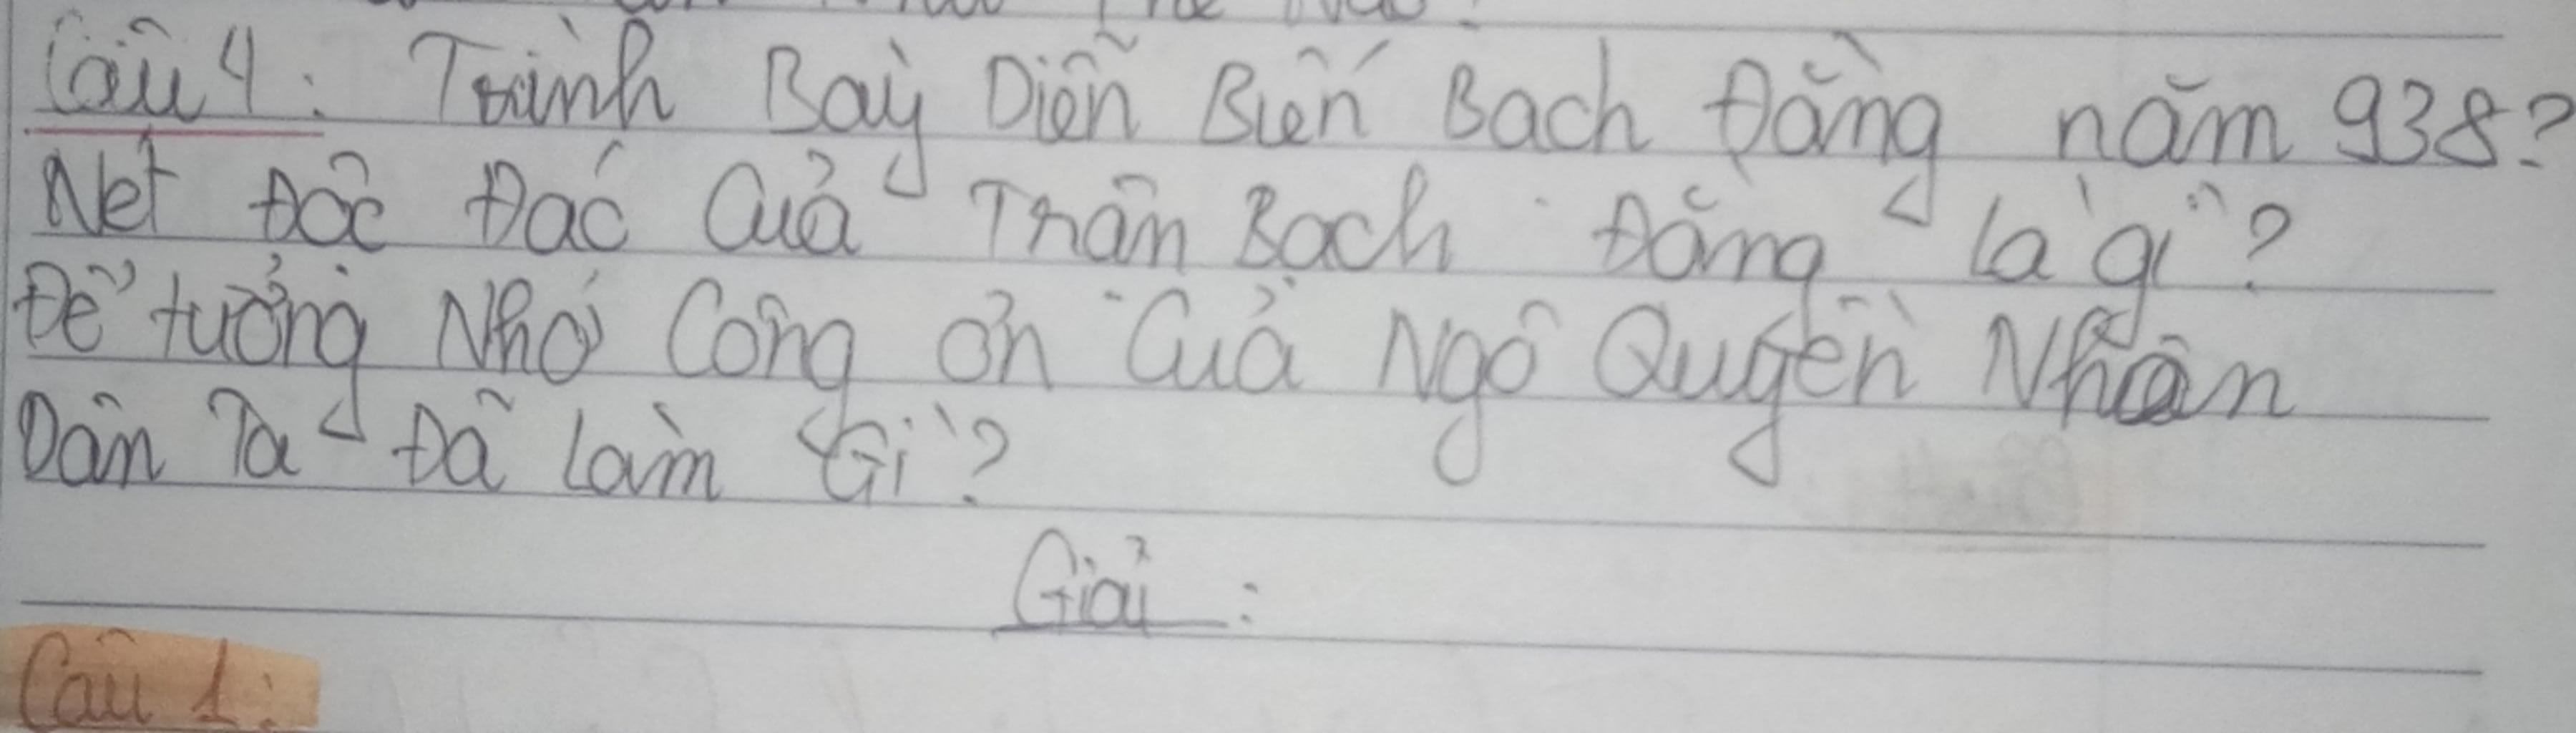 Câu 4: Trình Bày Diễn Biến Bạch Đằng năm 938?
Nét Độc Đáo Của Trận Bạch Đằng là gì?
Để tưởng Nhớ Công ơn Của Ngô Quyền Nhân
Dân Ta Đã Làm Gì?
Giải:
Câu 1: